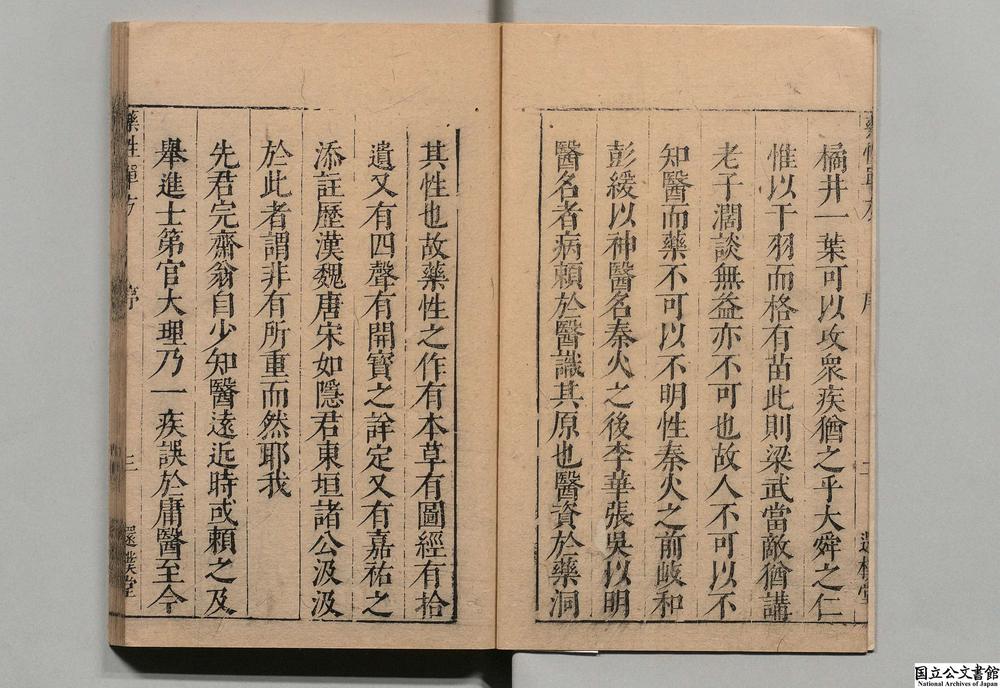 橘井一葉可以攻衆疾猶之乎大舜之仁
惟以干羽而格有苗此則梁武當敵猶講
老子濶談無益亦不可也故人不可以不
知醫而藥不可以不明性秦火之前岐和
彭緩以神醫名秦火之後李華張吳以明
醫名者病頼於醫識其原也醫資於藥洞
其性也故藥性之作有本草有圖經有拾
遺又有四聲有開寳之詳定又有嘉祐之
添註歷漢魏唐宋如隱君東垣諸公汲汲
於此者謂非有所重而然耶我
先君完齋翁自少知醫遠近時或頼之及
舉進士第官大理乃一疾誤於庸醫至今
藥性單方 序 三 還樸堂
国立公文書館
National Archives of Japan